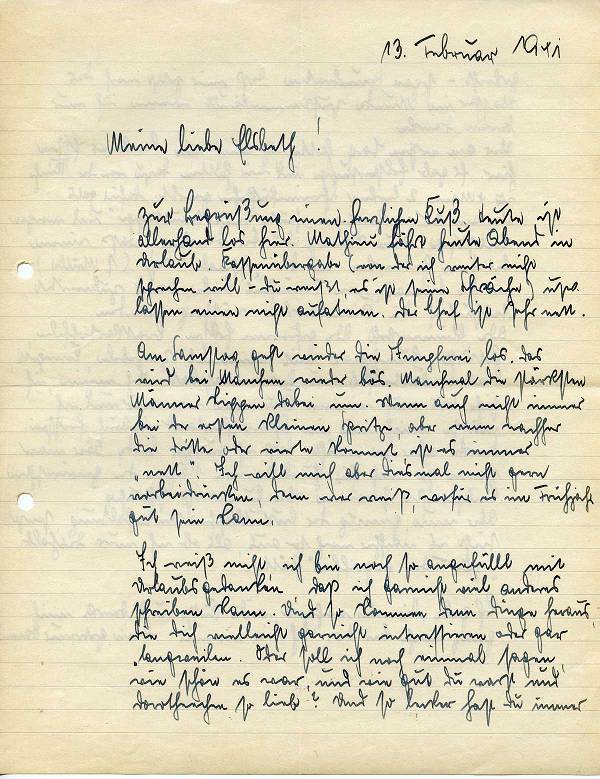 13. Februar 1941
Meine liebe Elsbeth!
Zur Begrüßung einen herzlichen Kuß. Heute ist
allerhand los hier. Mathieu fährt heute Abend in
Urlaub. Kassenübergabe (von der ich weiter nicht
sprechen will – du weißt, es ist seine Schwäche) usw.
lassen einen nicht aufatmen. Der Chef ist sehr nett.
Am Samstag geht wieder die Impferei los, das
wird bei Manchem wieder bös. Manchmal die stärksten
Männer kippen dabei um. Wenn auch nicht immer
bei der ersten kleinen Spritze, aber wenn nachher
die dritte oder vierte kommt, ist es immer
"nett". Ich will mich aber diesmal nicht gern
vorbeidrücken, denn wer weiß, wofür es im Frühjahr
gut sein kann.
Ich weiß nicht, ich bin noch so angefüllt mit
Urlaubsgedanken, daß ich garnicht viel anderes
schreiben kann. Und so kommen denn Dinge heraus,
die dich vielleicht garnicht interessieren oder gar
langweilen. Oder soll ich noch einmal sagen,
wie schön es war, und wie gut du warst und
Dorotheechen so lieb? Und so lecker hast du immer